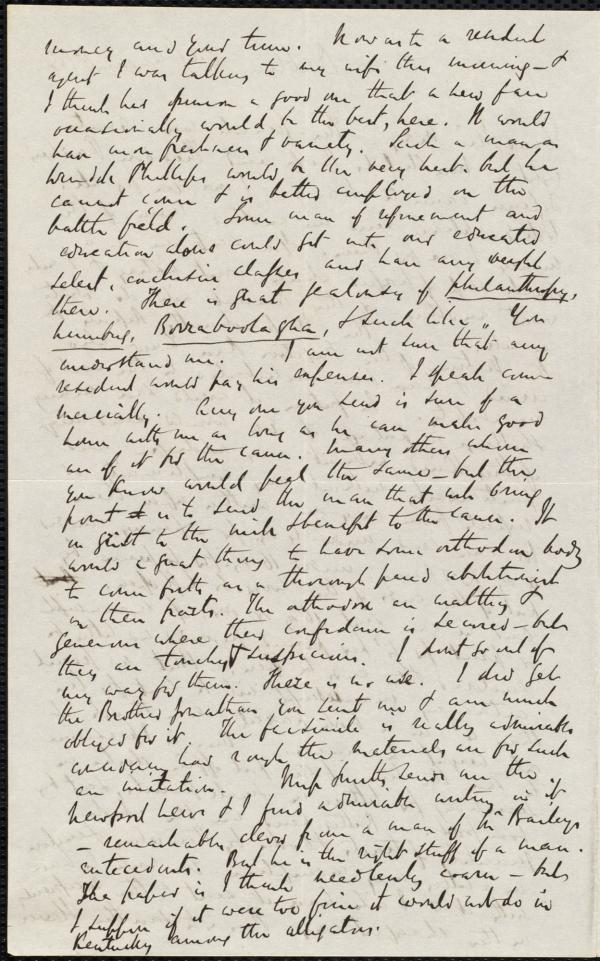 money and your time. Now as to a resident
agent I was talking to my wife this morning — &
I think her opinion a good one that a new face
occasionally would be the best, here. It would
have more freshness & variety. Such a man as
Wendell Phillips would be the very best. but he
cannot come & is better employed on the
battle field. Some man of refinement and
education alone could get into our educated
select, exclusive classes and have any weight
there. There is great jealousy of philanthropy,
humbug, Borraboolagha, & such like, You
understand me. I am not sure that any
resident would pay his expenses. I speak com-
mercially. Any one you send is sure of a
home with me as long as he can make good
use of it for the cause. Many others whom
you know would feel the same — but the
point is to send the man that will bring
in grist to the mill & benefit to the cause. It
would a great thing to have some orthodox body
to come forth as a thorough paced abolitionist
in these parts. The orthodox are wealthy &
generous where their confidence is secured — but
they are touchy & suspicious. I dont go out of
my way for them. There is no use. I did get
the Brother Jonathan you sent me & am much
obliged for it. The facsimile is really admirable
considering how rough the materials are for such
an imitation. Miss Smith sends me the
Newport News & I find admirable writing in it
— remarkably clever from a man of Mr Baileys
antecedents. But he is the right stuff of a man.
The paper is I think needlessly coarse — but
I suppose if it were too fine it would not do in
Kentucky among the alligators.